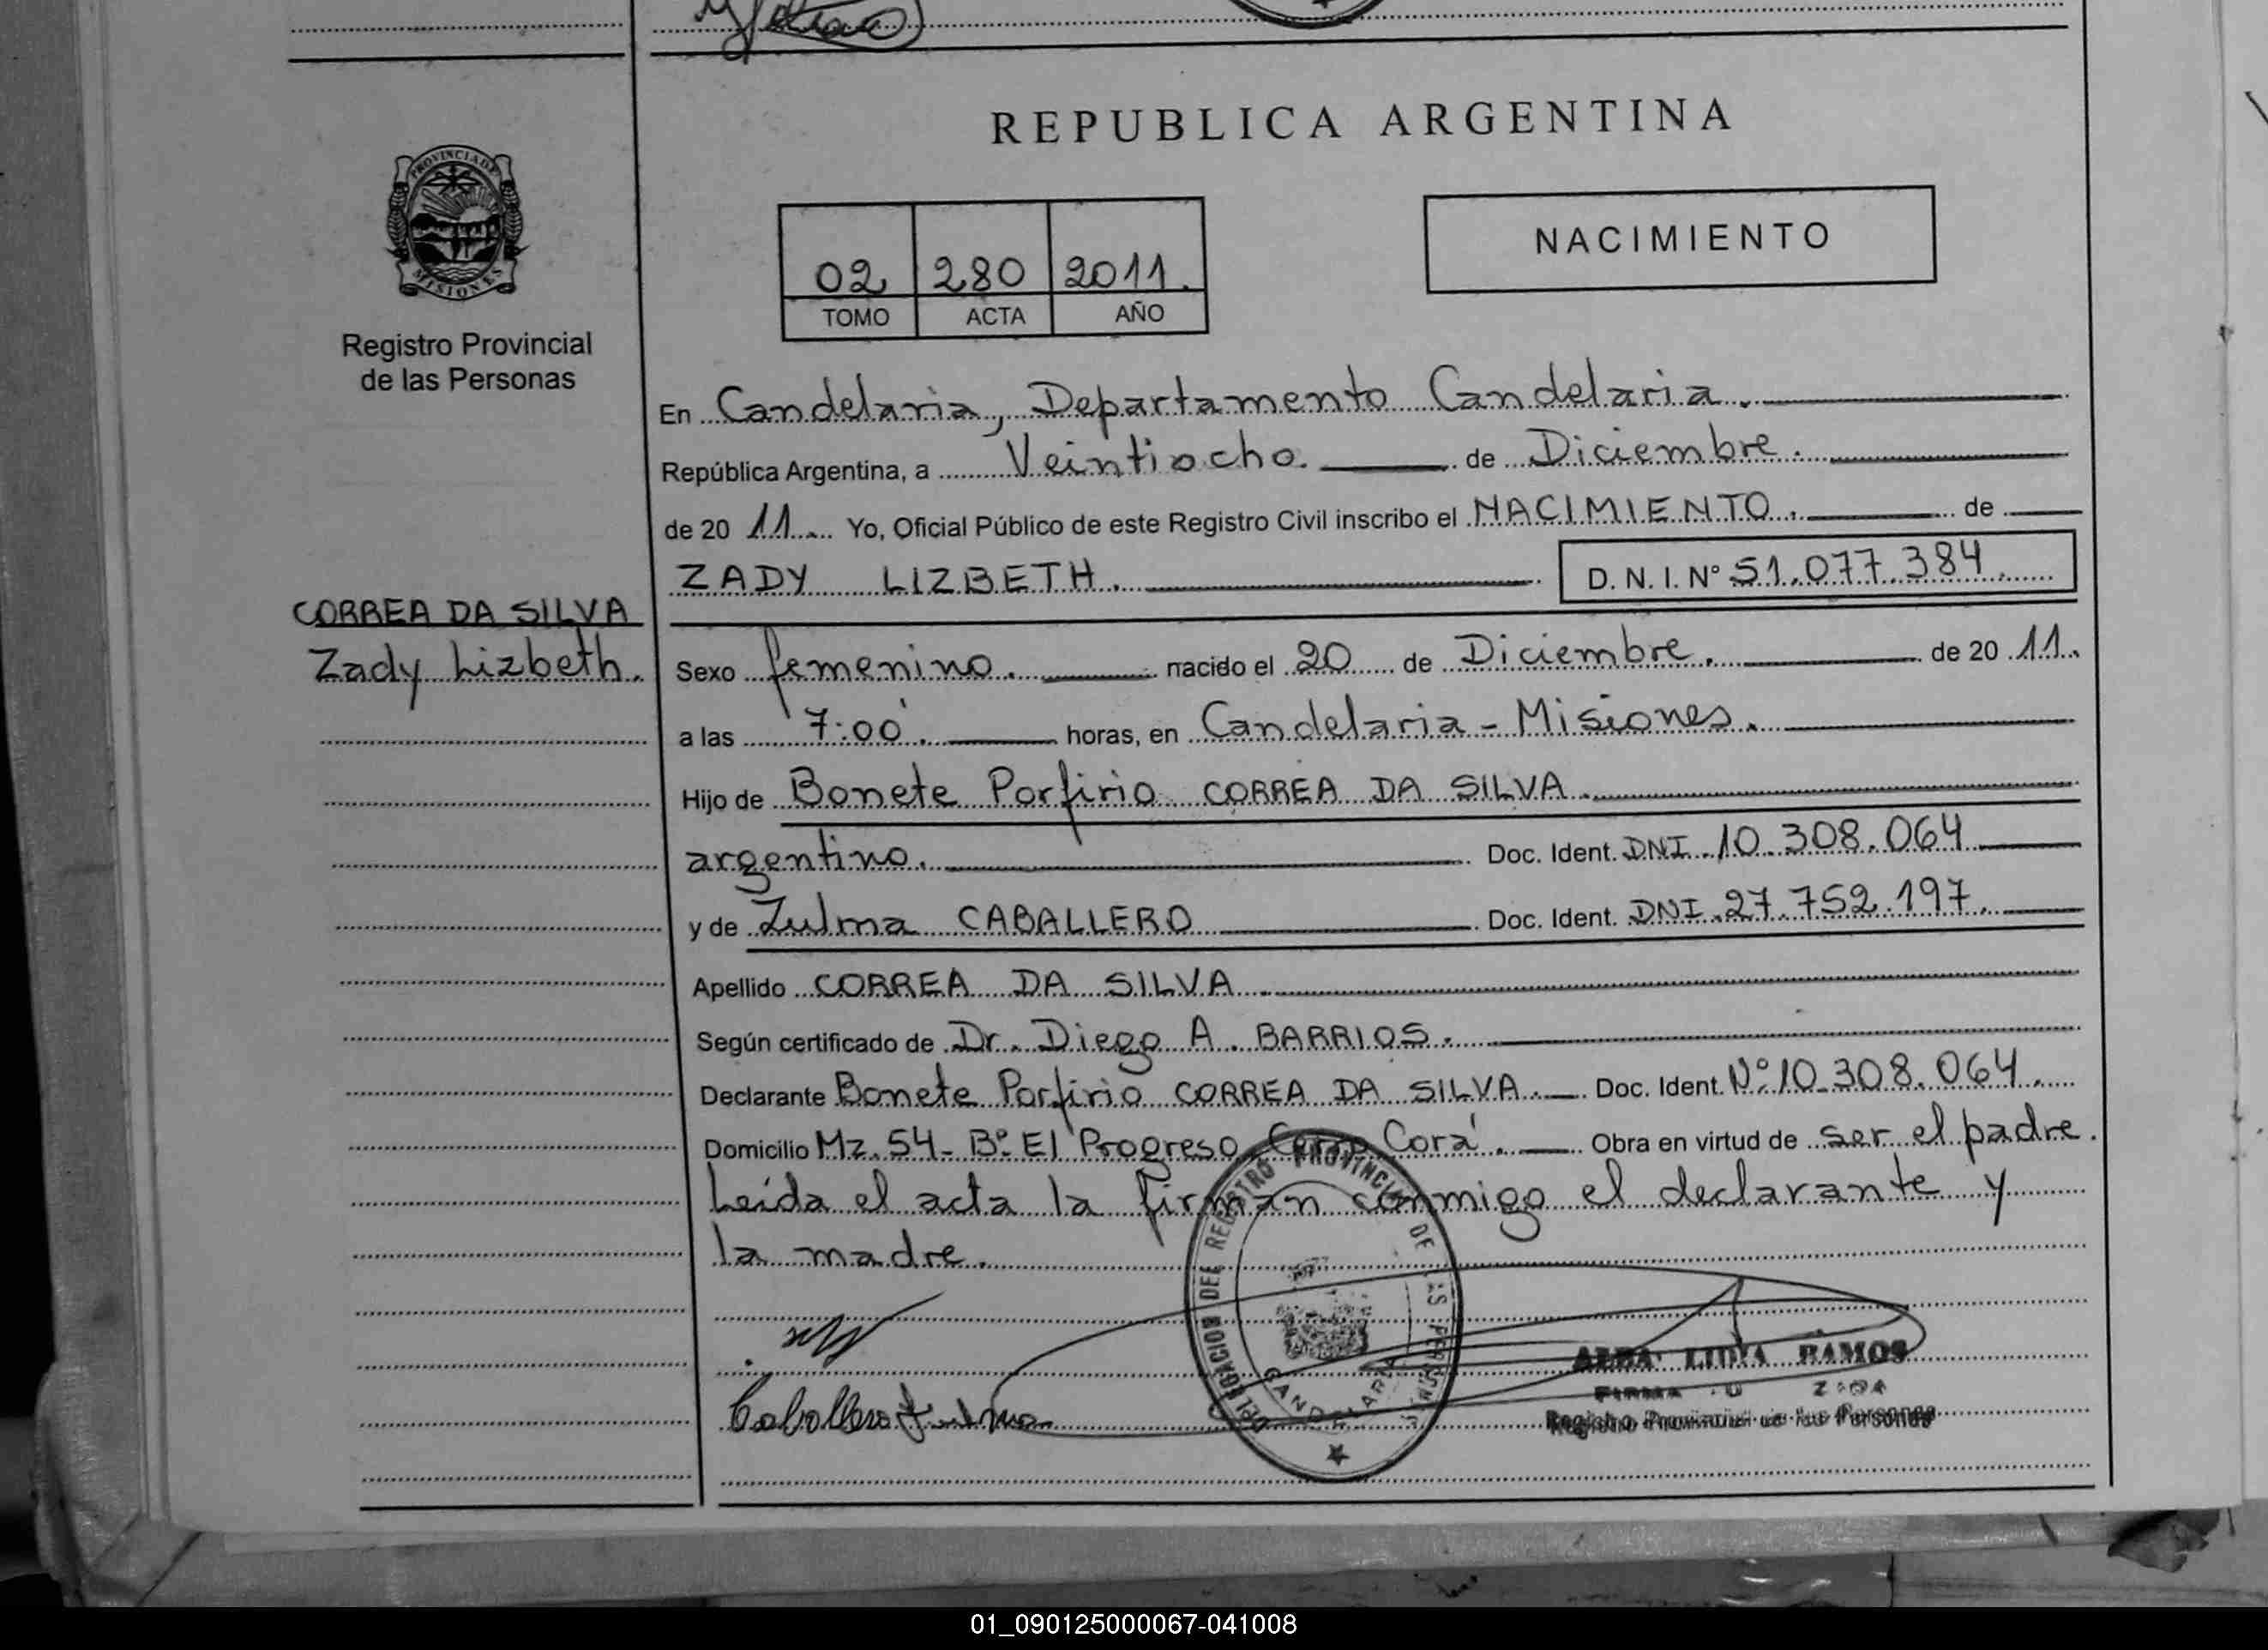 REPUBLICA ARGENTINA
PROVINCIA DE
MISIONES
Registro Provincial
de las Personas
02 280 2011.
TOMO ACTA AÑO
NACIMIENTO
En Candelaria, Departamento Candelaria.
República Argentina, a Veintiocho. de Diciembre.
de 20 11. Yo, Oficial Público de este Registro Civil inscribo el NACIMIENTO. de
ZADY LIZBETH. D. N. I. N° 51.077.384.
CORREA DA SILVA
Zady Lizbeth.
Sexo femenino. nacido el 20 de Diciembre. de 20 11.
a las 7:00'. horas, en Candelaria - Misiones.
Hijo de Bonete Porfirio CORREA DA SILVA.
argentino. Doc. Ident. DNI. 10.308.064
y de Zulma CABALLERO Doc. Ident. DNI. 27.752.197.
Apellido CORREA DA SILVA.
Según certificado de Dr. Diego A. BARRIOS.
Declarante Bonete Porfirio CORREA DA SILVA. Doc. Ident. N° 10.308.064.
Domicilio Mz. 54 - B° El Progreso Cerro Corá. Obra en virtud de ser el padre.
Leída el acta la firman conmigo el declarante y
la madre.
DELEGACION DEL REGISTRO PROVINCIAL DE LAS PERSONAS
CANDELARIA
Caballero Zulma
ALBA LIDIA RAMOS
Registro Provincial de las Personas
01_090125000067-041008